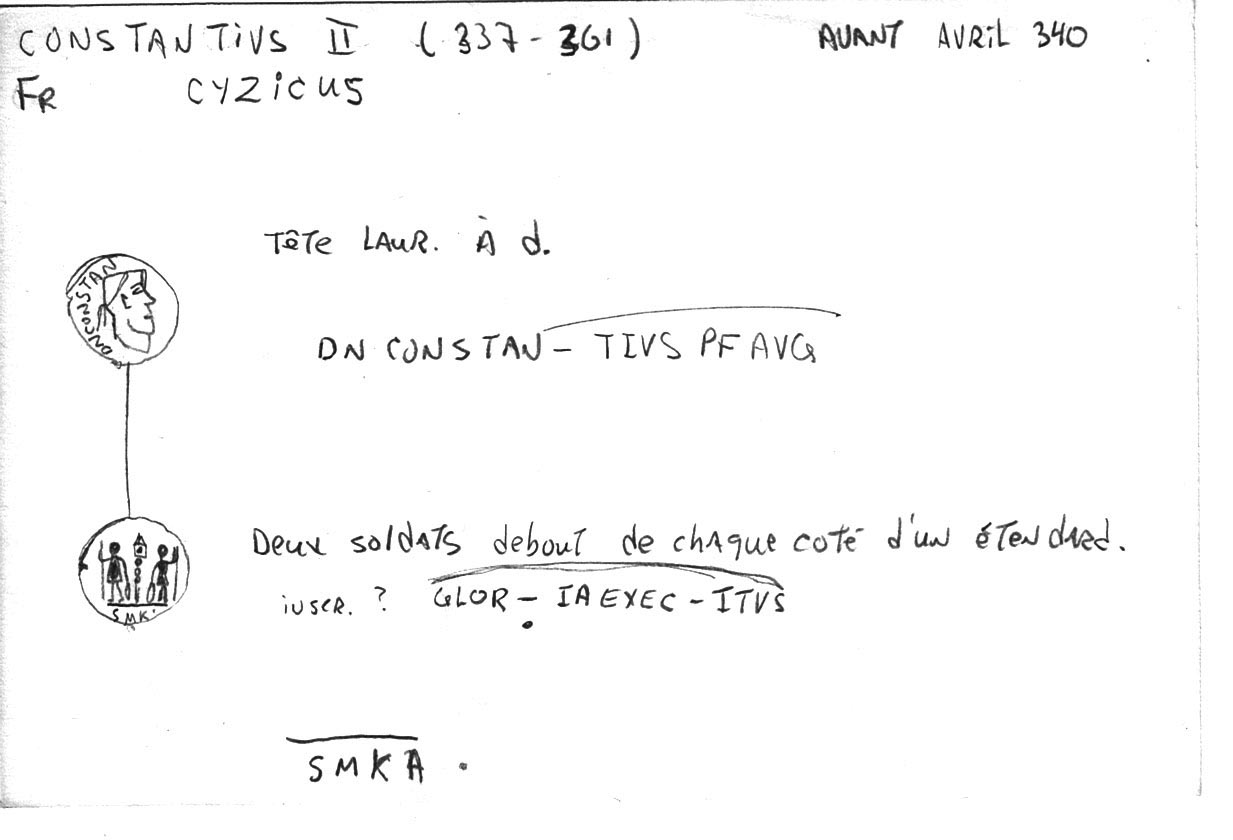 CONSTANTIVS II (337-361) AVANT AVRIL 340
FR CYZICUS
Tête LAUR. À d.
DNCONSTAN
DN CONSTAN - TIVS PF AVG
Deux soldats debout de chaque coté d'un étendard.
inscr. ? GLOR - IAEXEC - ITVS
SMK
SMKA .